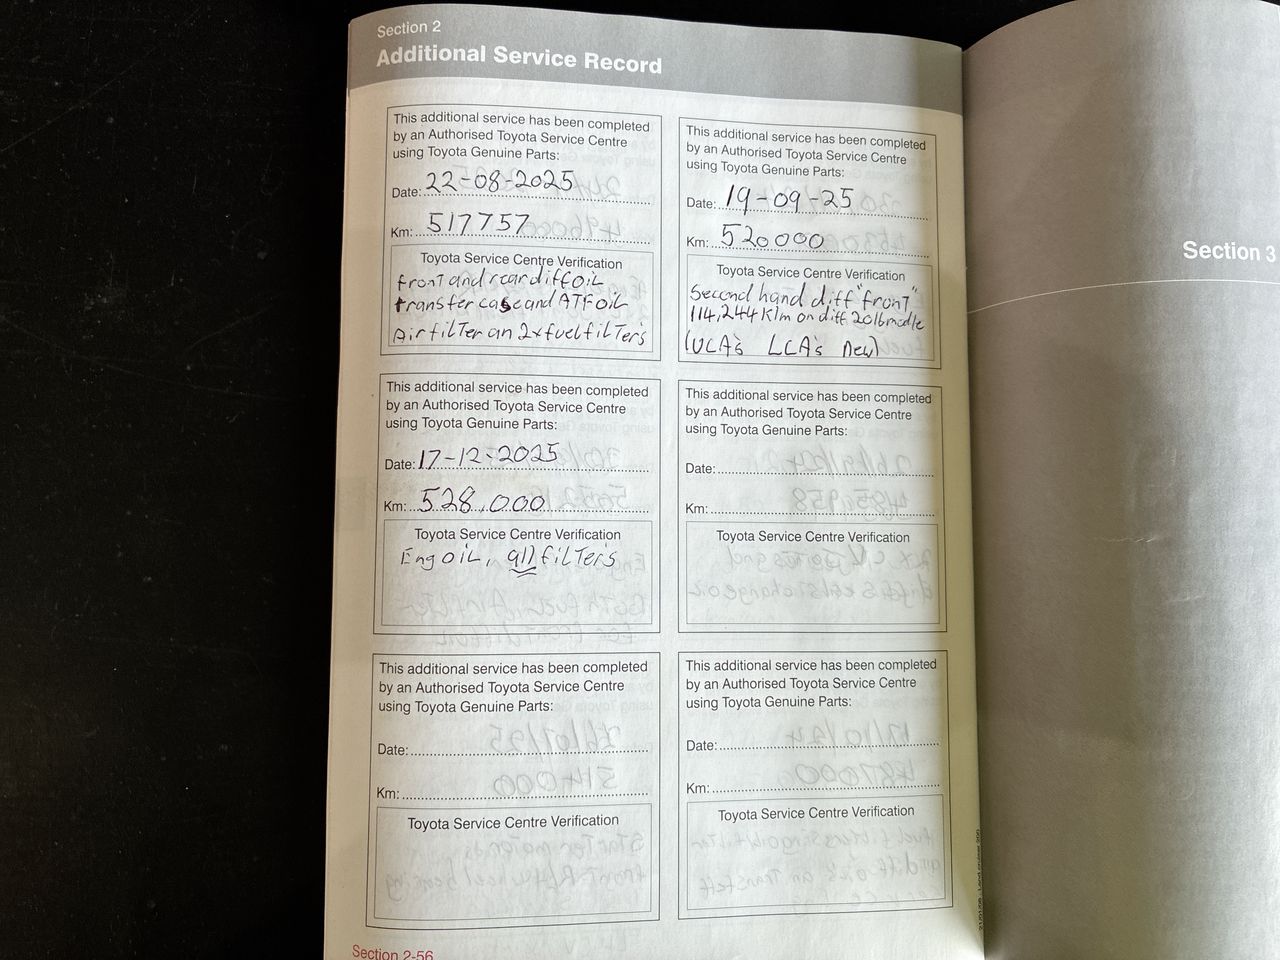 Section 2
Additional Service Record
This additional service has been completed
by an Authorised Toyota Service Centre
using Toyota Genuine Parts:
Date: 22-08-2025
Km: 517757
Toyota Service Centre Verification
front and rear diff oil
transfer case and ATF oil
Air filter an 2x fuel filters
This additional service has been completed
by an Authorised Toyota Service Centre
using Toyota Genuine Parts:
Date: 19-09-25
Km: 520000
Toyota Service Centre Verification
Second hand diff "front"
114,244 Klm on diff 2016 modle
(UCA's LCA's New)
This additional service has been completed
by an Authorised Toyota Service Centre
using Toyota Genuine Parts:
Date: 17-12-2025
Km: 528,000
Toyota Service Centre Verification
Eng oil, all filters
This additional service has been completed
by an Authorised Toyota Service Centre
using Toyota Genuine Parts:
Date:
Km:
Toyota Service Centre Verification
This additional service has been completed
by an Authorised Toyota Service Centre
using Toyota Genuine Parts:
Date:
Km:
Toyota Service Centre Verification
This additional service has been completed
by an Authorised Toyota Service Centre
using Toyota Genuine Parts:
Date:
Km:
Toyota Service Centre Verification
Section 2-56
Section 3